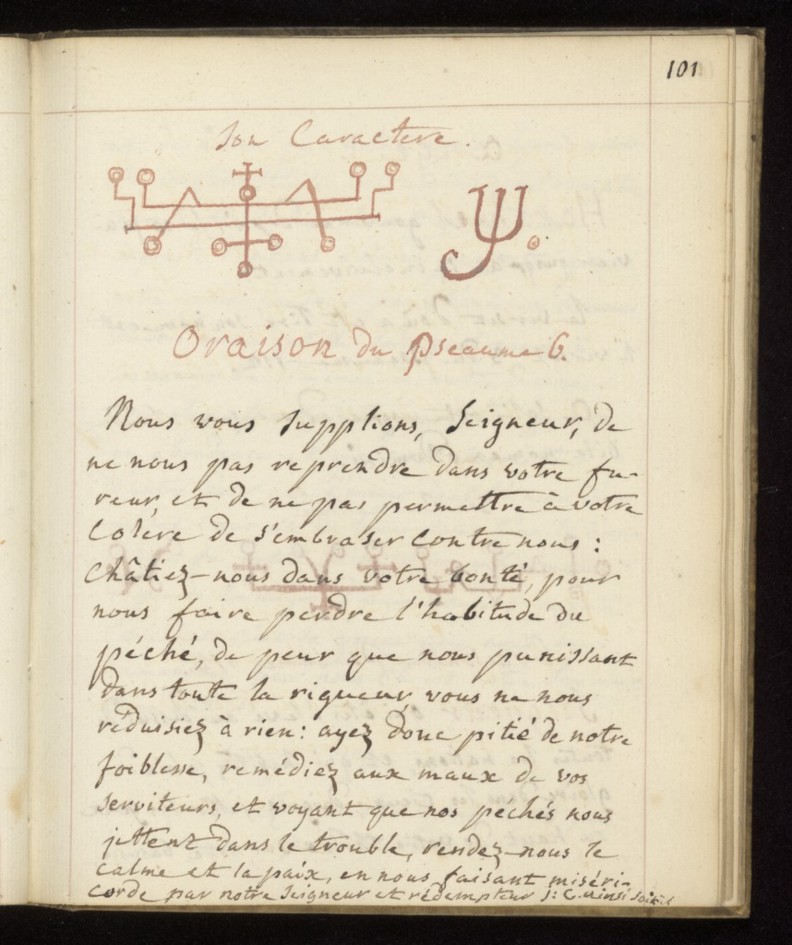 101
Son Caractere.
Oraison du Pseaume 6.
Nous vous supplions, Seigneur, de
ne nous pas reprendre dans votre fu-
reur, et de ne pas permettre à votre
Colere de s'embraser Contre nous :
Châtiez-nous dans votre bonté, pour
nous faire perdre l'habitude du
péché, de peur que nous punissant
dans toute la rigueur, vous ne nous
réduisiez à rien: ayez donc pitié de notre
foiblesse, remédiez aux maux de vos
serviteurs, et voyant que nos péchés nous
jettent dans le trouble, rendez-nous le
calme et la paix, en nous faisant miséri-
corde par notre Seigneur et rédempteur J: C. ainsi soit-il